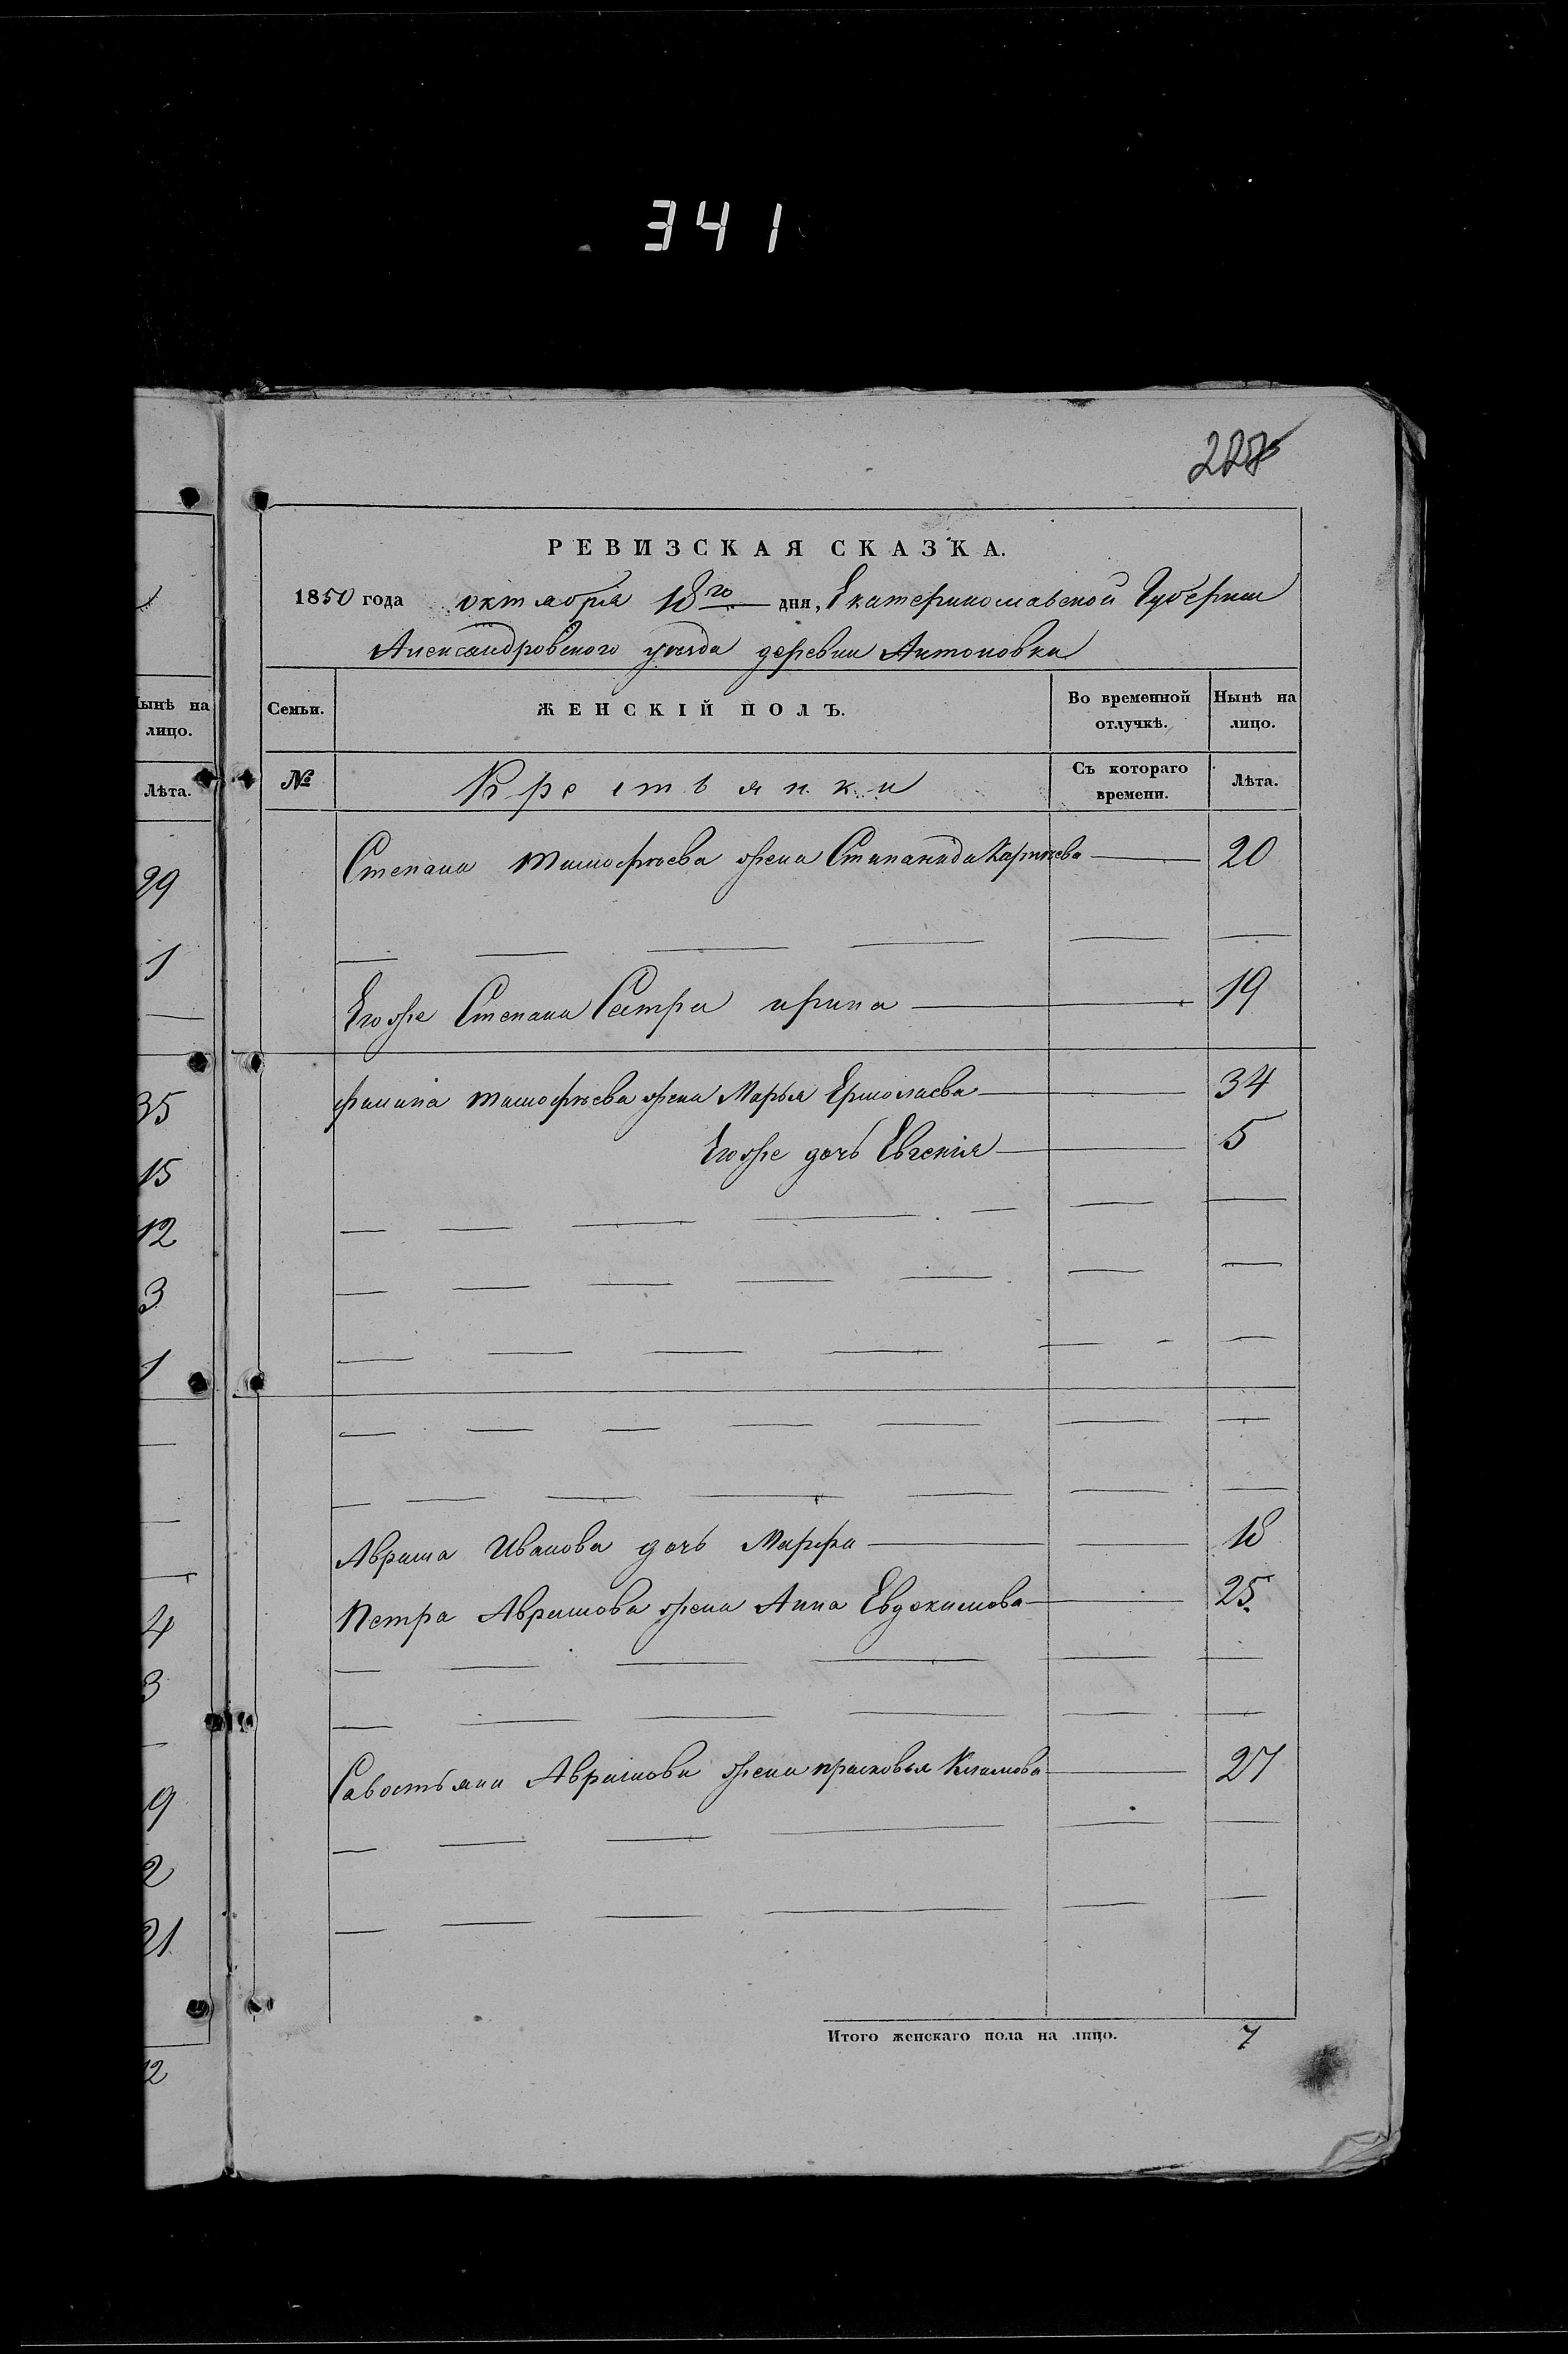 341
РЕВИЗСКАЯ СКАЗКА.
1850 года октября 18го дня, Екатеринославской Губернии
Александровского уезда деревни Антоновки
Нынѣ на лицо.
Лѣта.
29
1
35
15
12
3
1
4
3
9
2
21
12
Семьи. ЖЕНСКІЙ ПОЛЪ. Во временной отлучкѣ. Нынѣ на лицо.
№ Крестьянки Съ котораго времени. Лѣта.
Степана Тимофѣева жена Степанида 20
Егоже Степана Сестра ирина 19
филипа Тимофѣева жена Марья Ермолаева 34
Егоже дочь Евгенія 5
Аврама Иванова дочь Марфа 18
Петра Аврамова жена Анна Евдокимова 25
Савостьяна Аврамова жена прасковья Климова 27
Итого женскаго пола на лицо. 7